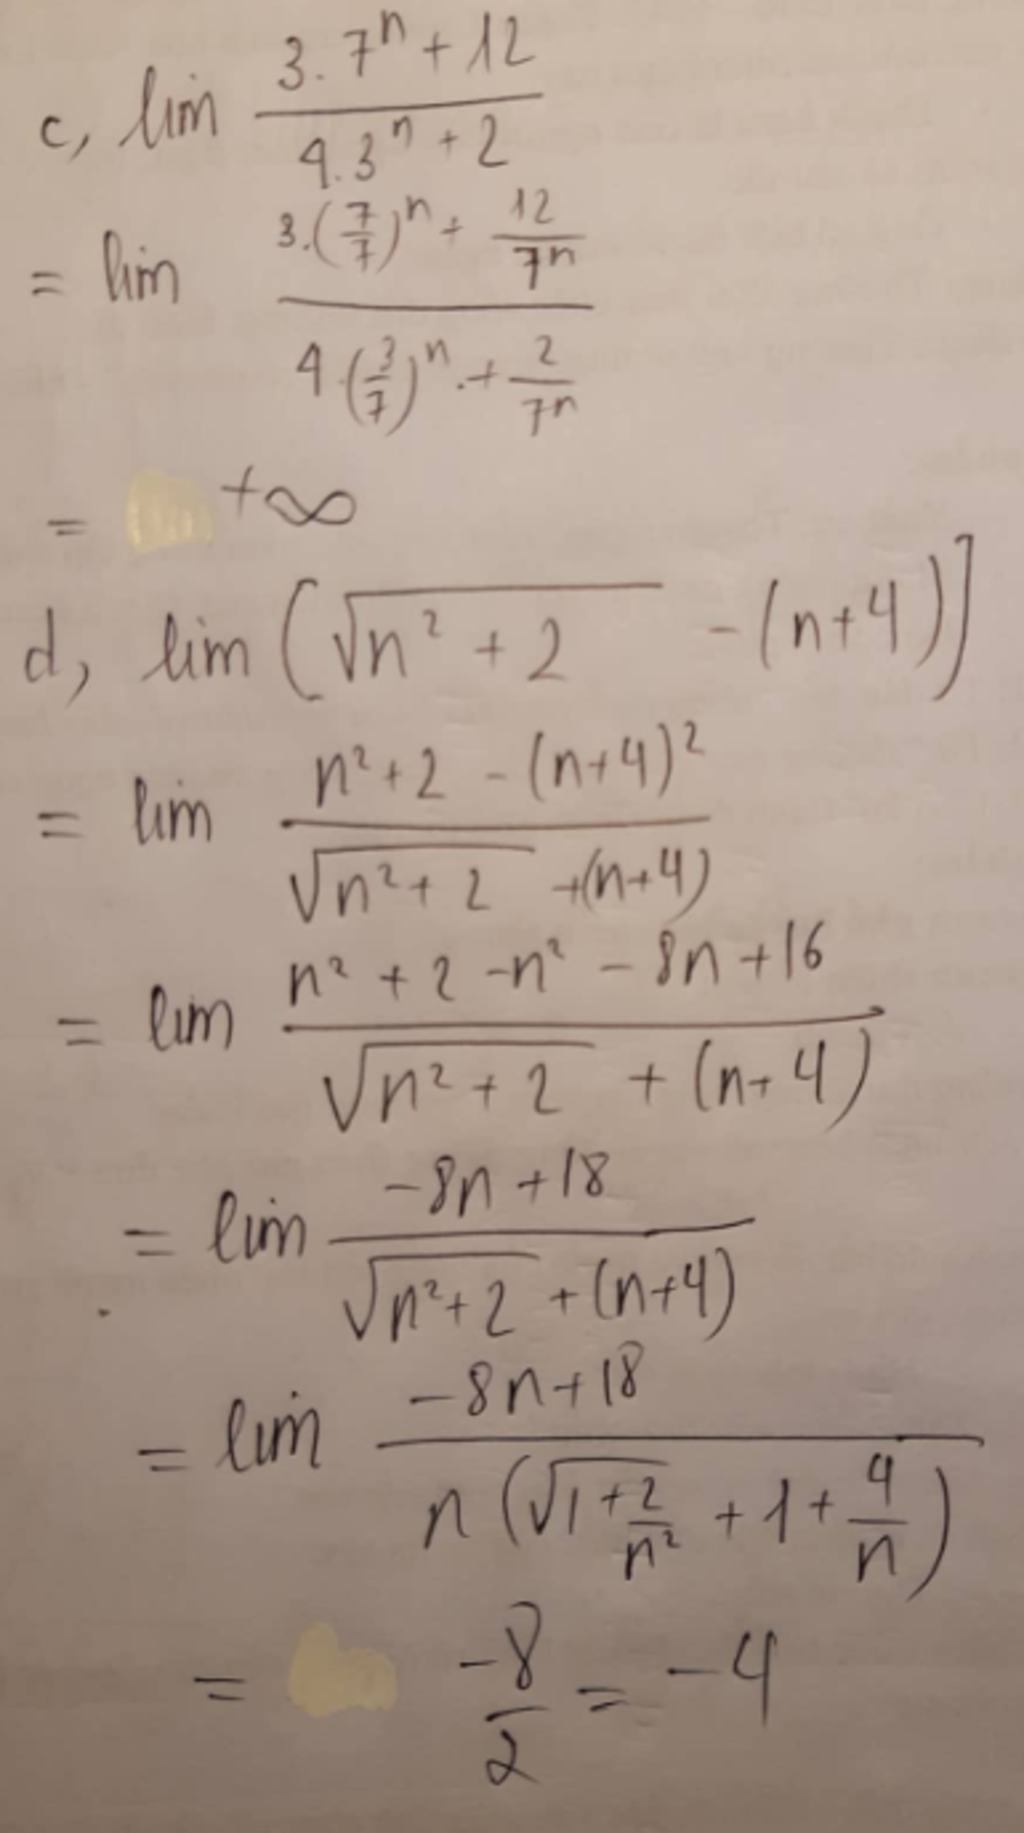 c, lim (3.7ⁿ + 12)/(4.3ⁿ + 2)
= lim (3.(7/7)ⁿ + 12/7ⁿ)/(4.(3/7)ⁿ + 2/7ⁿ)
= +∞
d, lim (√(n² + 2) - (n+4)]
= lim (n²+2 - (n+4)²)/(√(n²+2) +(n+4))
= lim (n² + 2 -n² - 8n +16)/(√(n²+2) + (n+4))
= lim (-8n +18)/(√(n²+2) + (n+4))
= lim (-8n+18)/(n(√(1+2/n²) + 1 + 4/n))
= -8/2 = -4